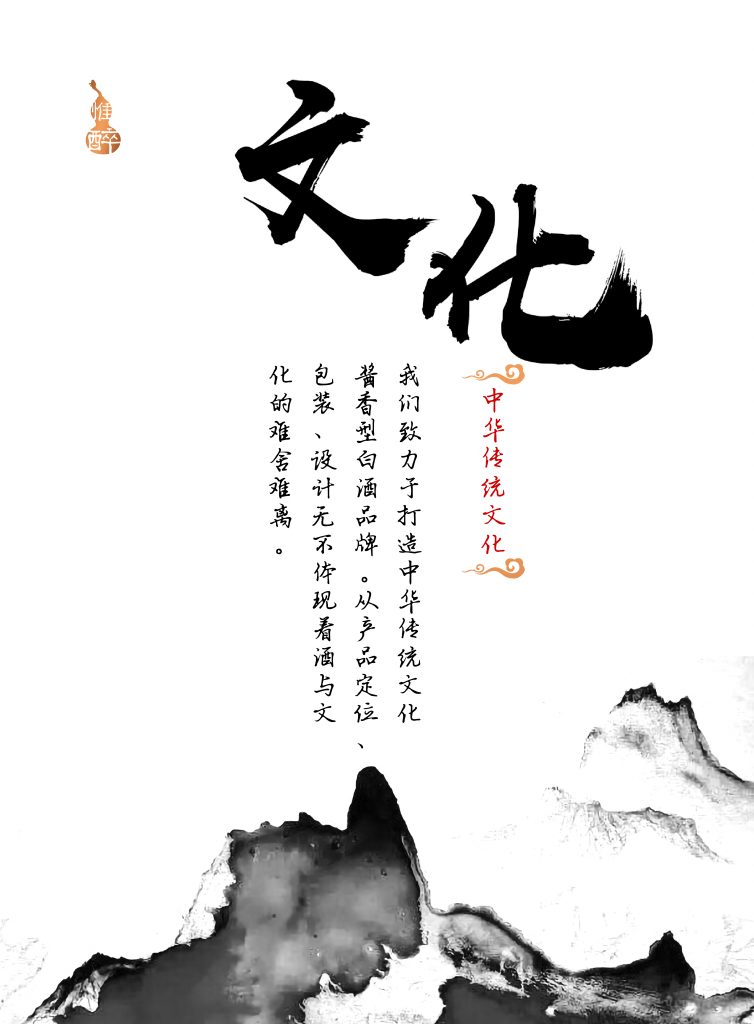 惟醉
文化
中华传统文化
我们致力于打造中华传统文化
酱香型白酒品牌。从产品定位、
包装、设计无不体现着酒与文
化的难舍难离。